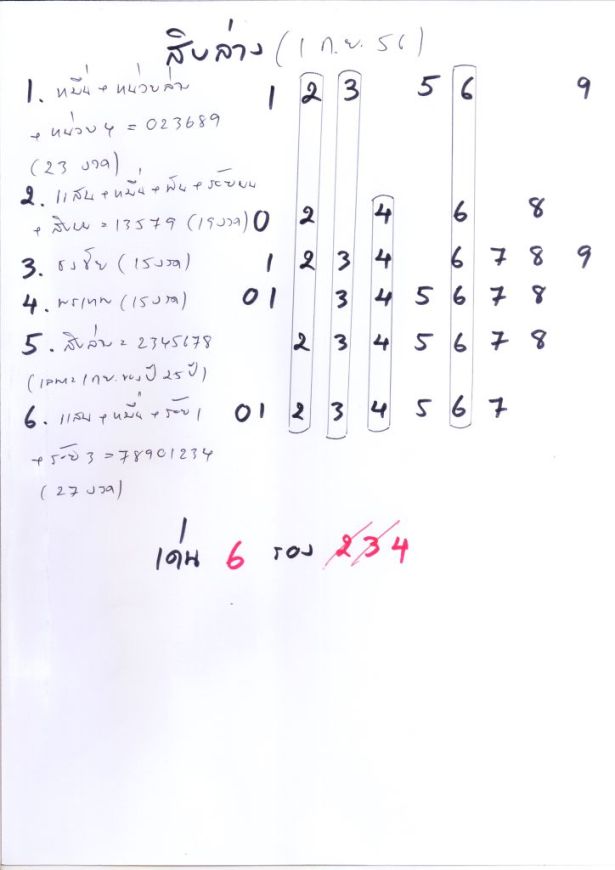 สิบล่าง (1 ก.ย. 56)
1. หมื่น + หน่วยล่าง 1 2 3 5 6 9
+ หน่วย 4 = 023689
(23 งวด)
2. แสน + หมื่น + พัน + ร้อยบน
+ สิบบน = 13579 (19 งวด) 0 2 4 6 8
3. ธงชัย (15 งวด) 1 2 3 4 6 7 8 9
4. พรเทพ (15 งวด) 0 1 3 4 5 6 7 8
5. สิบล่าง = 2345678 2 3 4 5 6 7 8
(เฉพาะ 1 กย. ของปี 25 ปี)
6. แสน + หมื่น + ร้อย 1 0 1 2 3 4 5 6 7
+ ร้อย 3 = 78901234
(27 งวด)
เด่น 6 รอง 2 3 4